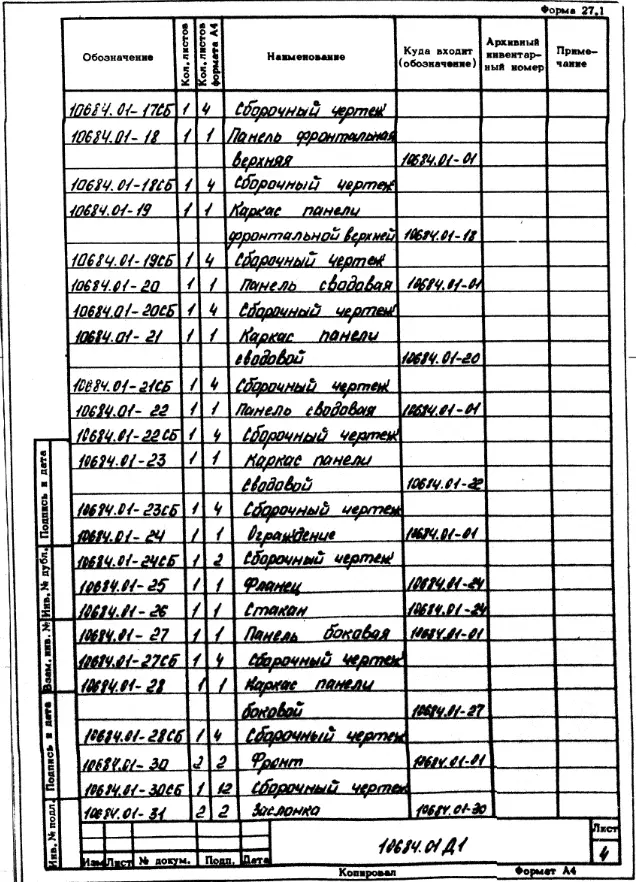 Форма 27.1
Обозначение Кол. листов Кол. листов формата А4 Наименование Куда входит (обозначение) Архивный инвентарный номер Примечание
10684.01-17СБ 1 4 Сборочный чертеж
10684.01-18 1 1 Панель фронтальная
верхняя 10684.01-01
10684.01-18СБ 1 4 Сборочный чертеж
10684.01-19 1 1 Каркас панели
фронтальной верхней 10684.01-18
10684.01-19СБ 1 4 Сборочный чертеж
10684.01-20 1 1 Панель сводовая 10684.01-01
10684.01-20СБ 1 4 Сборочный чертеж
10684.01-21 1 1 Каркас панели
сводовой 10684.01-20
10684.01-21СБ 1 4 Сборочный чертеж
10684.01-22 1 1 Панель сводовая 10684.01-01
10684.01-22СБ 1 4 Сборочный чертеж
10684.01-23 1 1 Каркас панели
сводовой 10684.01-22
10684.01-23СБ 1 4 Сборочный чертеж
10684.01-24 1 1 Ограждение 10684.01-01
10684.01-24СБ 1 2 Сборочный чертеж
10684.01-25 1 1 Фланец 10684.01-24
10684.01-26 1 1 Стакан 10684.01-24
10684.01-27 1 1 Панель боковая 10684.01-01
10684.01-27СБ 1 4 Сборочный чертеж
10684.01-28 1 1 Каркас панели
боковой 10684.01-27
10684.01-28СБ 1 4 Сборочный чертеж
10684.01-30 2 2 Фронт 10684.01-01
10684.01-30СБ 1 12 Сборочный чертеж
10684.01-31 2 2 Заслонка 10684.01-30
Подпись и дата
Инв. № дубл.
Взам. инв. №
Подпись и дата
Инв. № подл.
Изм Лист № докум. Подп. Дата
10684.01 Д1
Лист
4
Копировал Формат А4